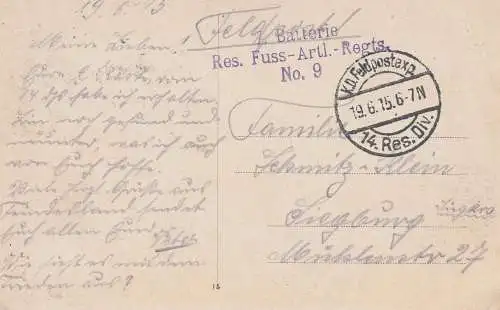 19.6.15
Meine Lieben!
Eure l. Karte vom
14. ds habe ich erhalten.
Bin noch gesund und
munter, was ich auch
von Euch hoffe.
Viele herzl. Grüße aus
Feindesland sendet
Euch allen Euer
Peter
Wie sieht es mit dem
Frieden aus?
Feldpost
Batterie
Res. Fuss-Artl.-Regts.
No. 9
K.D. Feldpostexp.
19.6.15.6-7N
14. Res. Div.
Familie
Schmitz-Klein
Siegburg
Mühlenstr 27
15